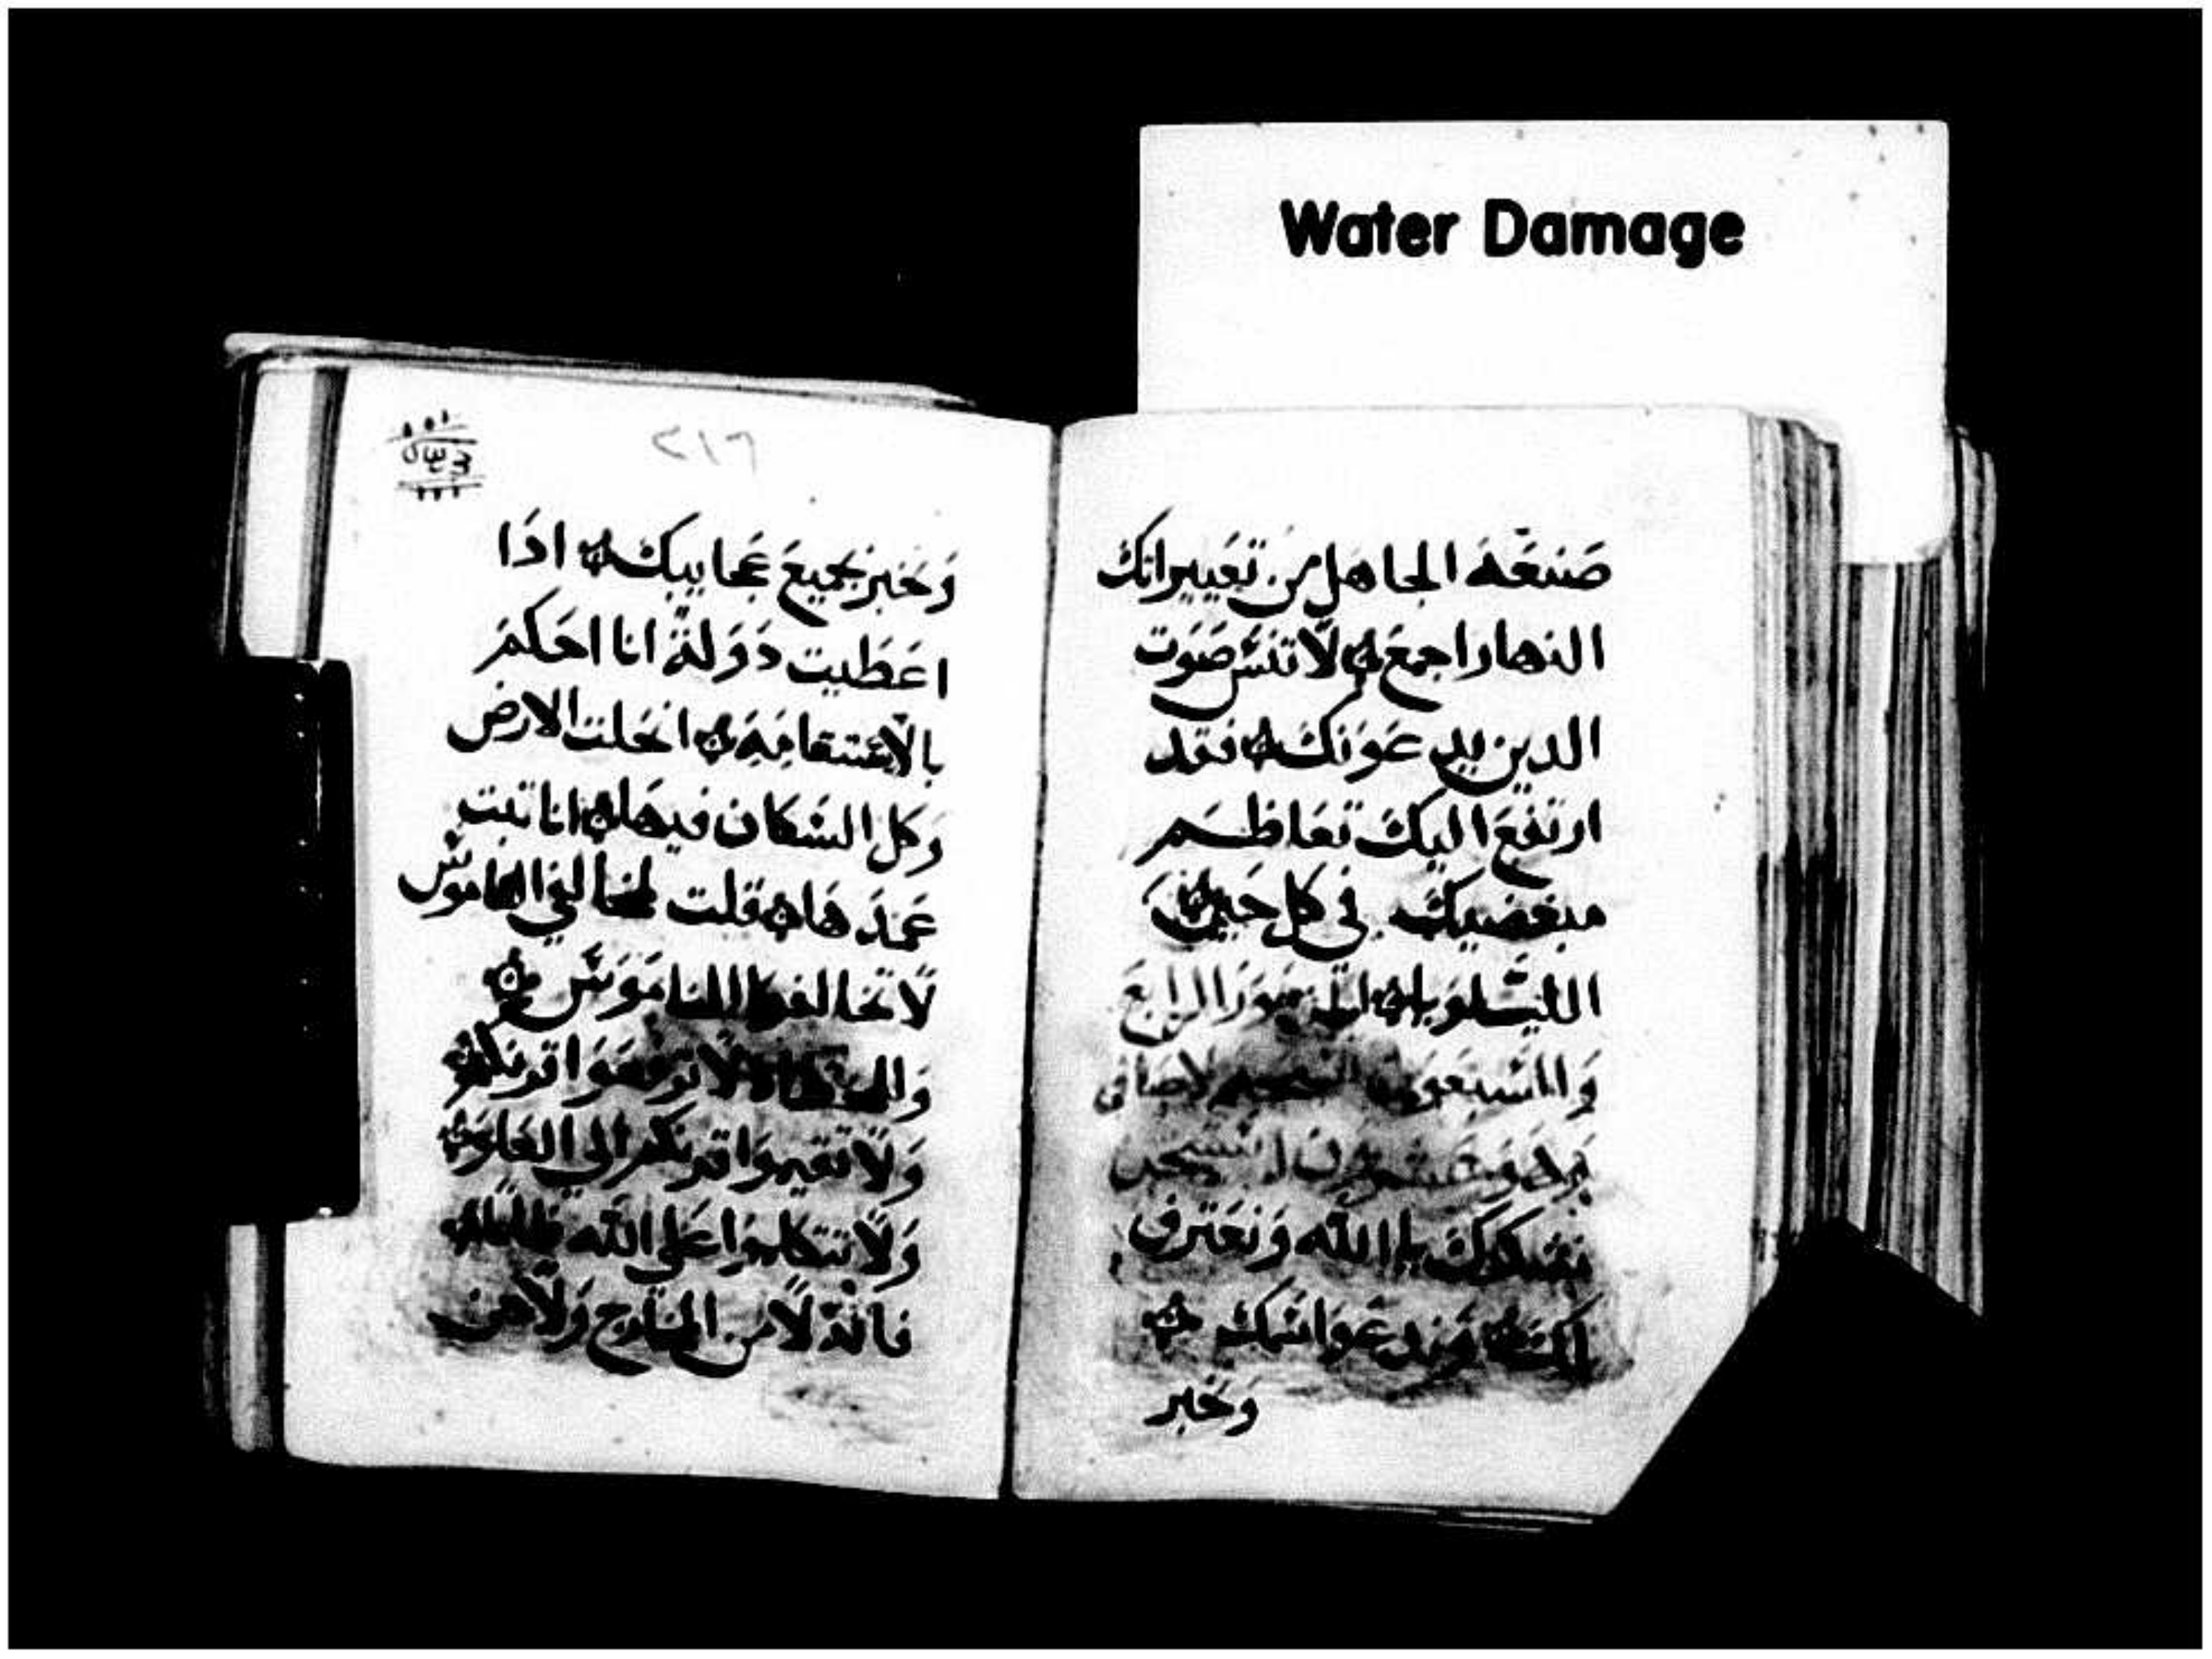 Water Damage
صَنعَة الجاهل من تعييراتك
النهار اجمع لا تنس صَوت
الدين يدعَونك فقد
ارتفعَ اليك تعَاظم
مبغضيك في كل حين
الليلويا المزمور الرابع
والسبعون لاصافي
نشكرك يا الله ونعترف
لك وندعوا اسمك
وَنخبر
٢١٦
وَنخبر بجميعَ عَجايبك اذَا
اعَطيت دَوَلة انا احَكم
بالاستقامَة انحَلت الارض
وكل السكان فيهَا انا تبت
عَمدَهَا قلت لمخالفي الناموس
لَا تخالفوا الناموَس
لا ترفعَوا قرنكم
وَلَا تقيموَا قرنكم الي العَلو
وَلَا تتكلموَا علي الله ظلمًا
فانه لَا من المخارج وَلَا من